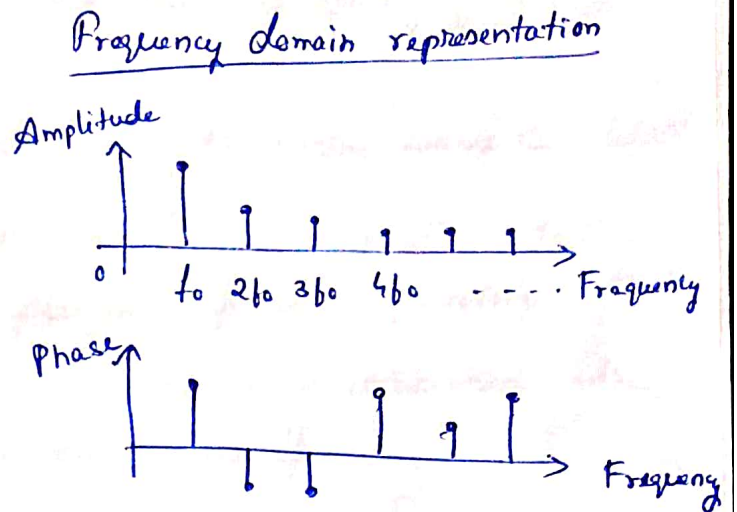 Frequency domain representation
Amplitude
0 f0 2f0 3f0 4f0 - - - . Frequency
Phase
Frequency